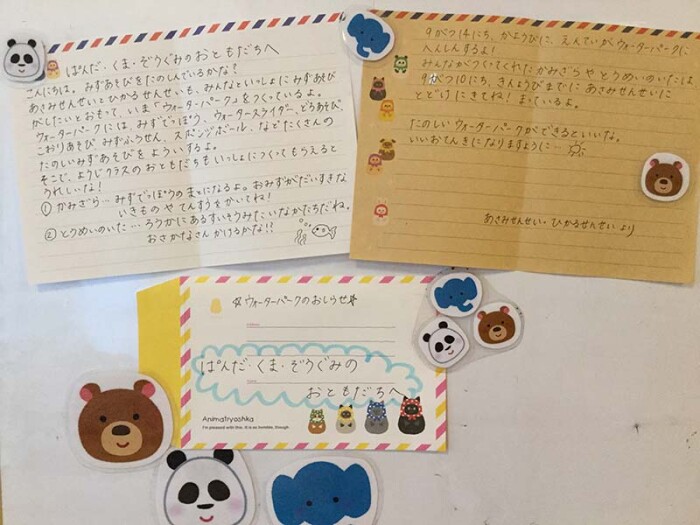 ぱんだ・くま・ぞうぐみのおともだちへ
こんにちは。みずあそびをたのしんでいるかな？
あさみせんせいとひかるせんせいも、みんなといっしょにみずあそび
がしたいとおもって、いま「ウォーターパーク」をつくっているよ。
ウォーターパークには、みずでっぽう、ウォータースライダー、どろあそび、
こおりあそび、みずふうせん、スポンジボール、などたくさんの
たのしいみずあそびをよういするよ。
そこで、ようじクラスのおともだちもいっしょにつくってもらえると
うれしいな！
① かみざら…みずでっぽうのまとになるよ。おみずがだいすきな
いきものやてんすうをかいてね！
② とうめいのいた…ろうかにあるすいそうみたいなかたちだね。
おさかなさんかけるかな!?
9がつ14にち、かようびに、えんていがウォーターパークに
へんしんするよ！
みんながつくってくれたかみざらやとうめいのいたは、
9がつ10にち、きんようびまでにあさみせんせいに
とどけにきてね！まっているよ。
たのしいウォーターパークができるといいな。
いいおてんきになりますように…
あさみせんせい・ひかるせんせいより
ウォーターパークのおしらせ
ぱんだ・くま・ぞうぐみの
おともだちへ
Animatryoshka
I'm pleased with this. It is so humble, though.